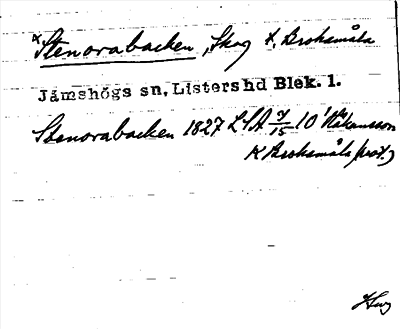 x Stenorabacken, Skog t. Broksmåla
Jämshögs sn, Listers hd Blek. l.
Stenorabacken 1827 LSA 10 Håkansson
K Broksmåla prot.)